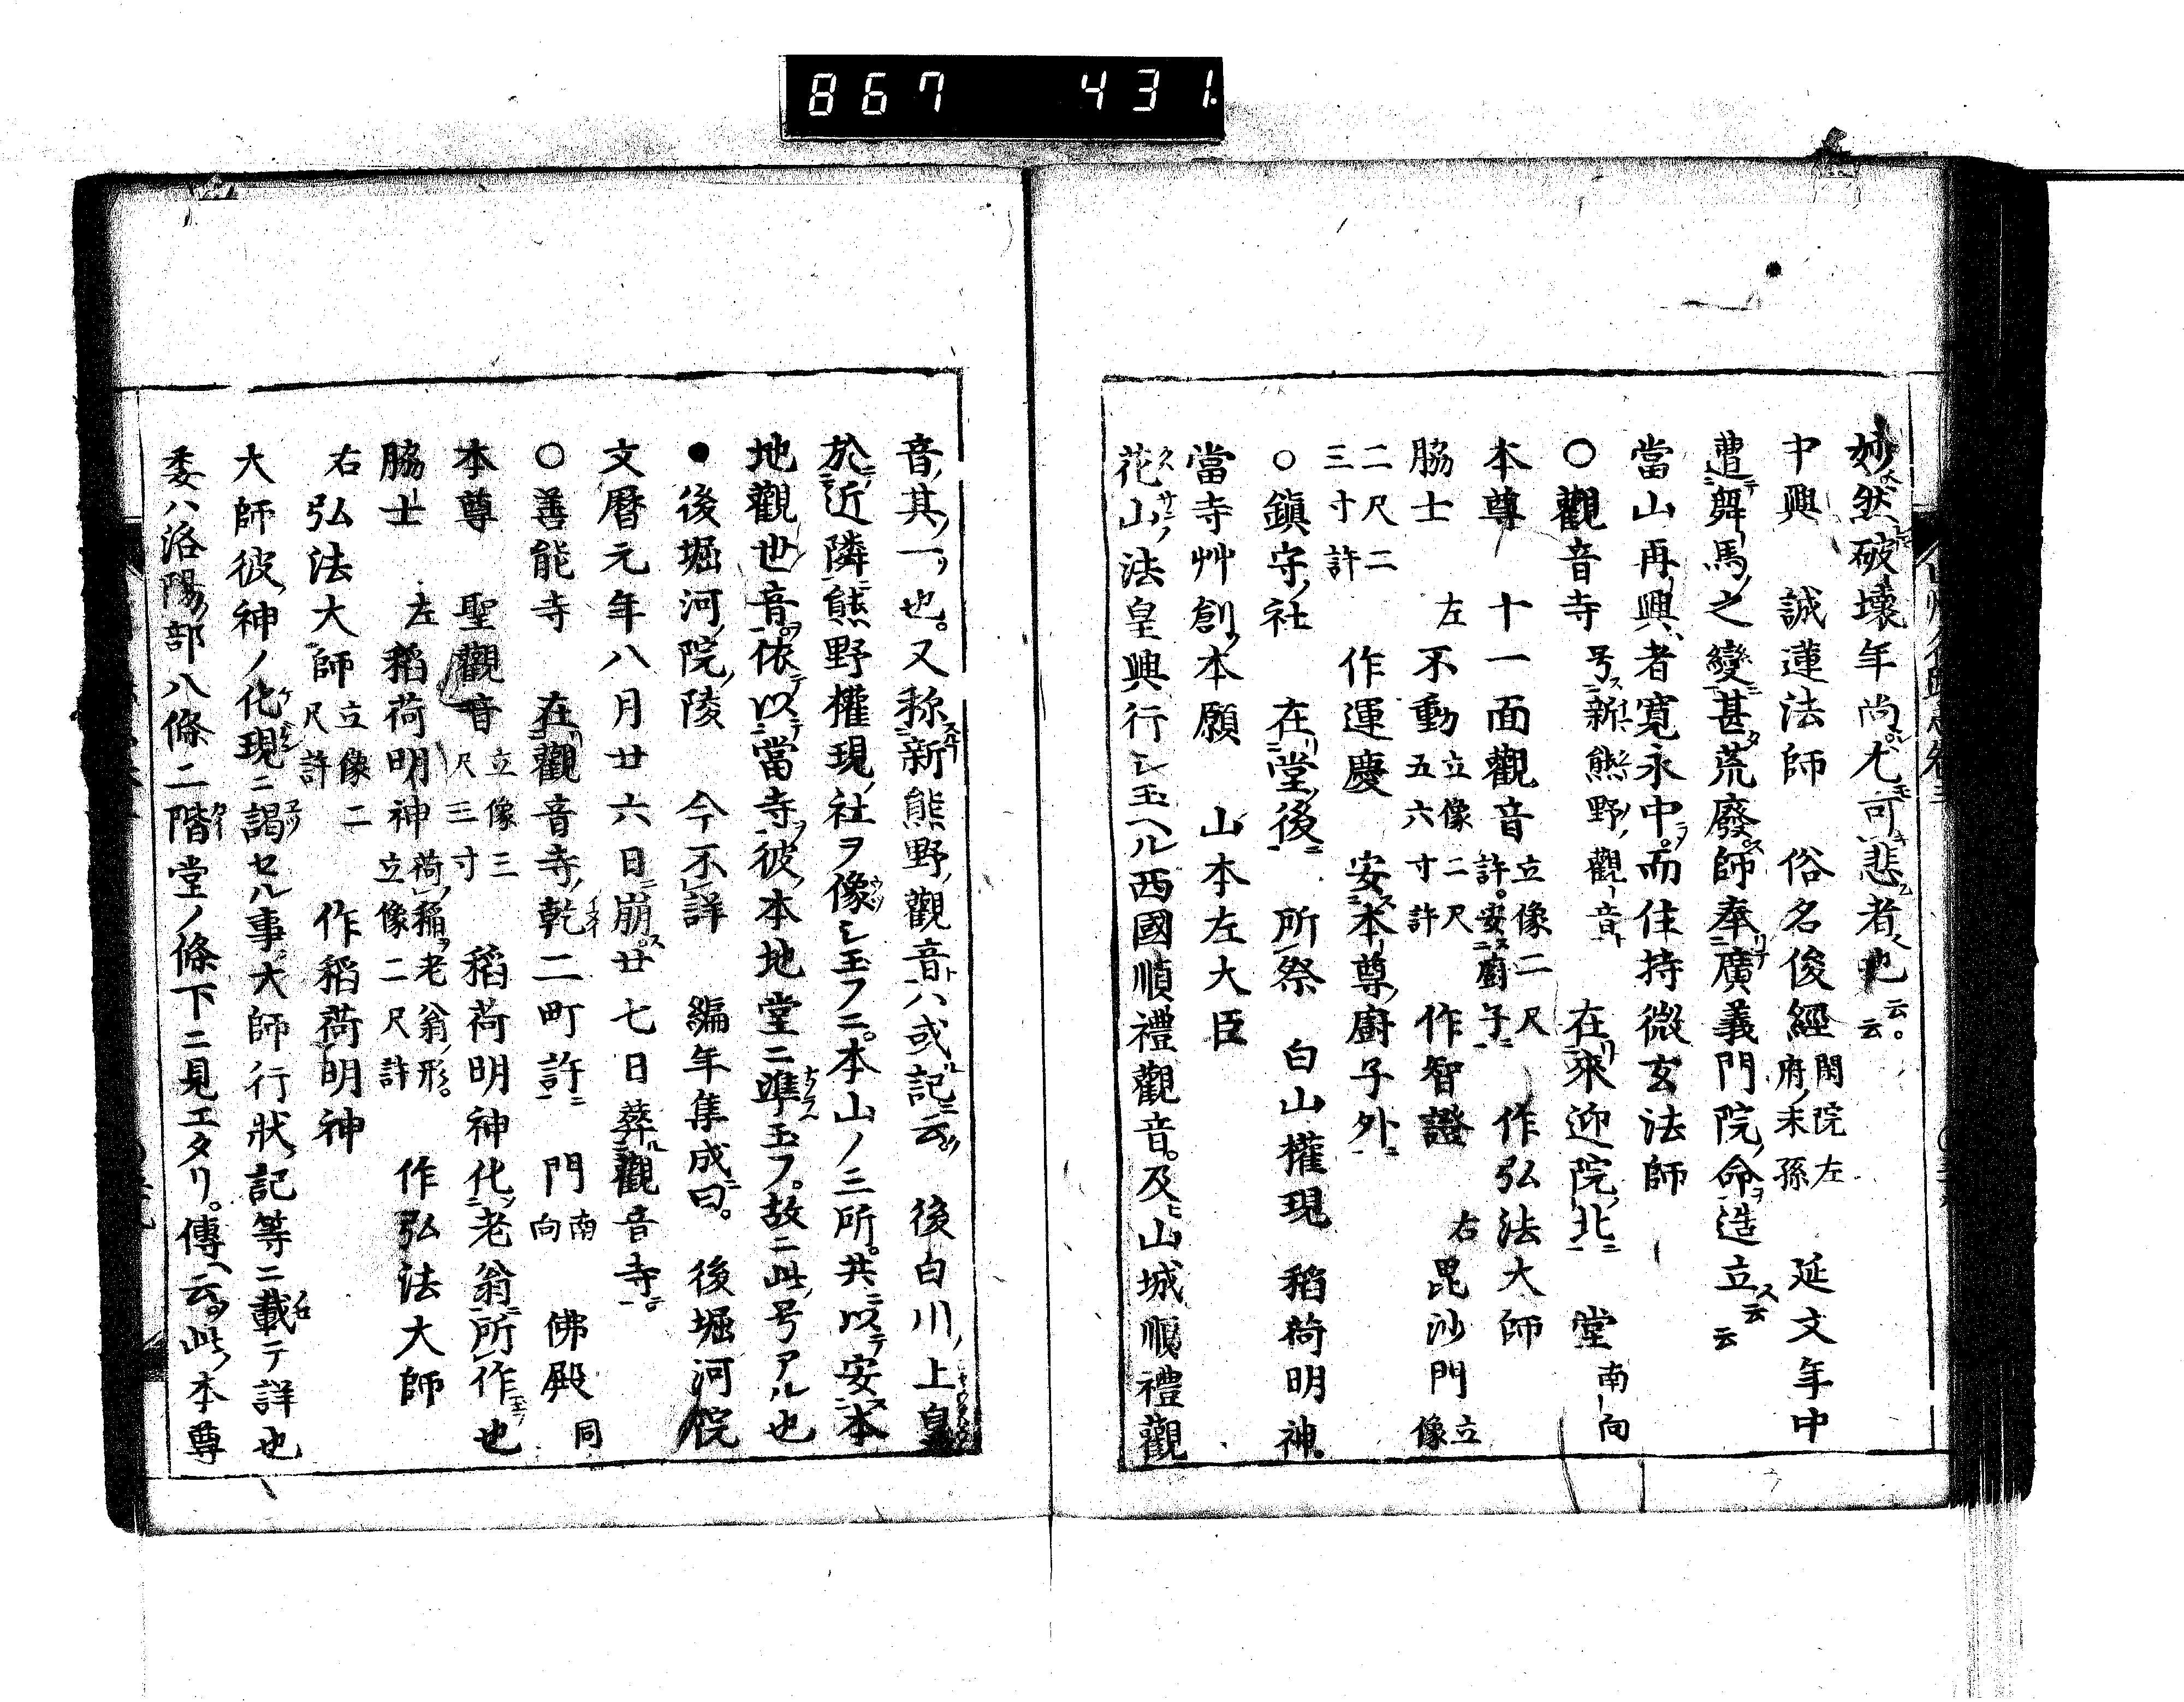 867 431
妙然破壊年尚尤可悲者也云云
中興 誠蓮法師 俗名俊經閑院左府ノ末孫 延文年中
遭舞馬ノ之變ニ甚タ荒廢ス師奉廣義門院ノ命ヲ造立ス云云
當山再興ハ者寛永中而住持微玄法師
○觀音寺 号新熊野ノ觀音ト 在リ來迎院ノ北ニ 堂南向
本尊 十一面觀音立像二尺許。安ス廚子ニ 作弘法大師
脇士 左不動立像二尺五六寸許 作智證 右毘沙門立像
二尺二三寸許 作運慶 安ス本尊ノ廚子ノ外ニ
○鎮守ノ社 在リ堂ノ後ニ 所祭 白山權現 稻荷明神
當寺艸創ノ本願 山本左大臣
花山ノ法皇興行シ玉ヘル西國順禮觀音。及ヒ山城順禮觀
音ノ其ノ一也。又称新熊野ノ觀音トハ或ル記ニ云ク 後白川ノ上皇
於近隣ニ熊野權現ノ社ヲ像シ玉フニ。本山ノ三所。共ニ以テ安本
地觀世音ヲ依テ以テ當寺ヲ彼ノ本地堂ニ準玉フ。故ニ此号アル也
●後堀河ノ院ノ陵 今不詳 編年集成ニ曰。 後堀河院
文暦元年八月廿六日ニ崩ス廿七日葬ル觀音寺ニ
○善能寺 在リ觀音寺ノ乾二町許ニ 門南向 佛殿同
本尊 聖觀音立像三尺三寸 稻荷明神化老翁ニ所作玉フ也
脇士 左稻荷明神荷稲ヲ老翁ノ形。立像二尺許 作弘法大師
右弘法大師立像二尺許 作稻荷明神
大師彼ノ神ノ化現ニ謁セル事。大師行狀ノ記等ニ載テ詳也
委ハ洛陽ノ部八條二階堂ノ條下ニ見エタリ。傳ヘ云フ此ノ本尊